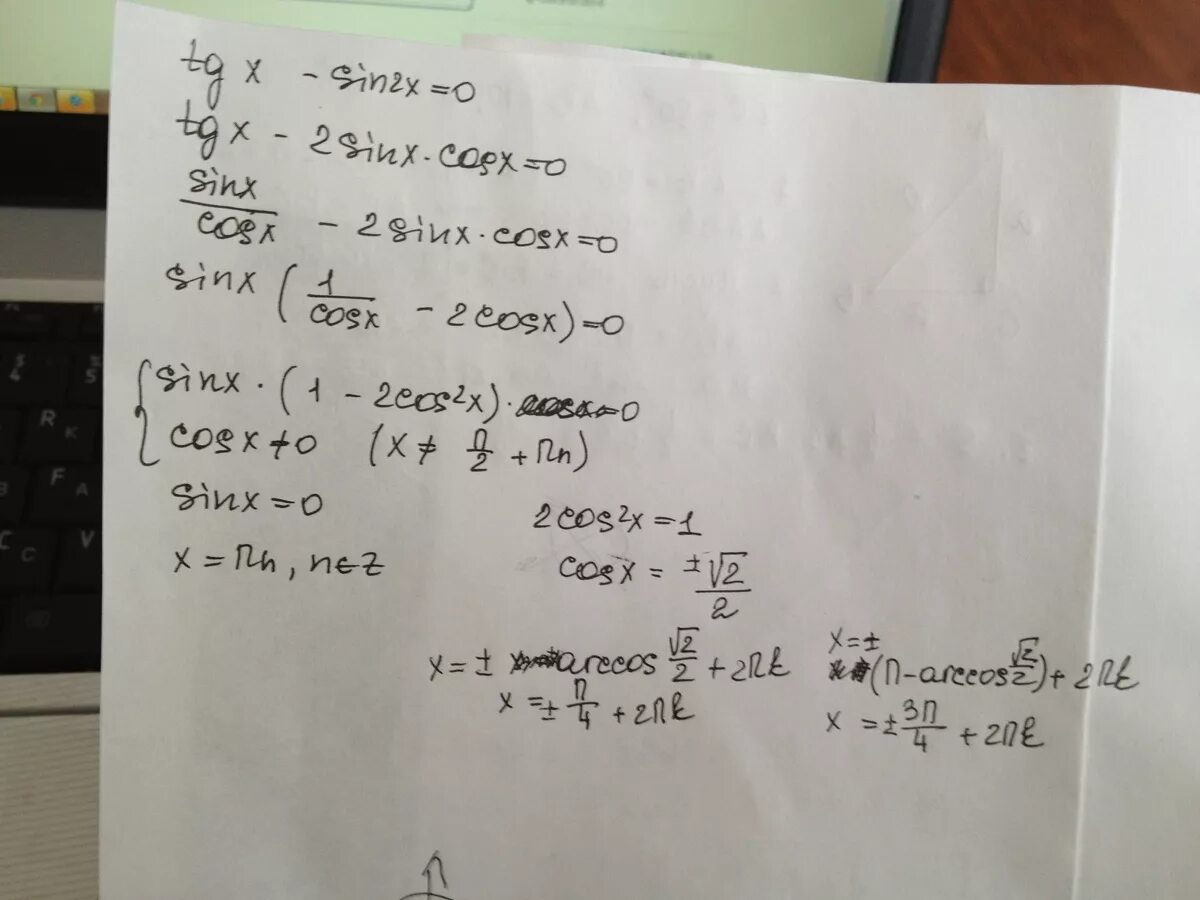 tg x - sin2x = 0
tg x - 2 sinx · cosx = 0
sinx/cosx - 2 sinx · cosx = 0
sinx (1/cosx - 2cosx) = 0
{ sinx · (1 - 2cos²x) · = 0
cosx ≠ 0 (x ≠ π/2 + πn)
sinx = 0
x = πn, n∈Z
2cos²x = 1
cosx = ±√2/2
x = ± arccos √2/2 + 2πk
x = ± π/4 + 2πk
x = ±
(π - arccos √2/2) + 2πk
x = ± 3π/4 + 2πk